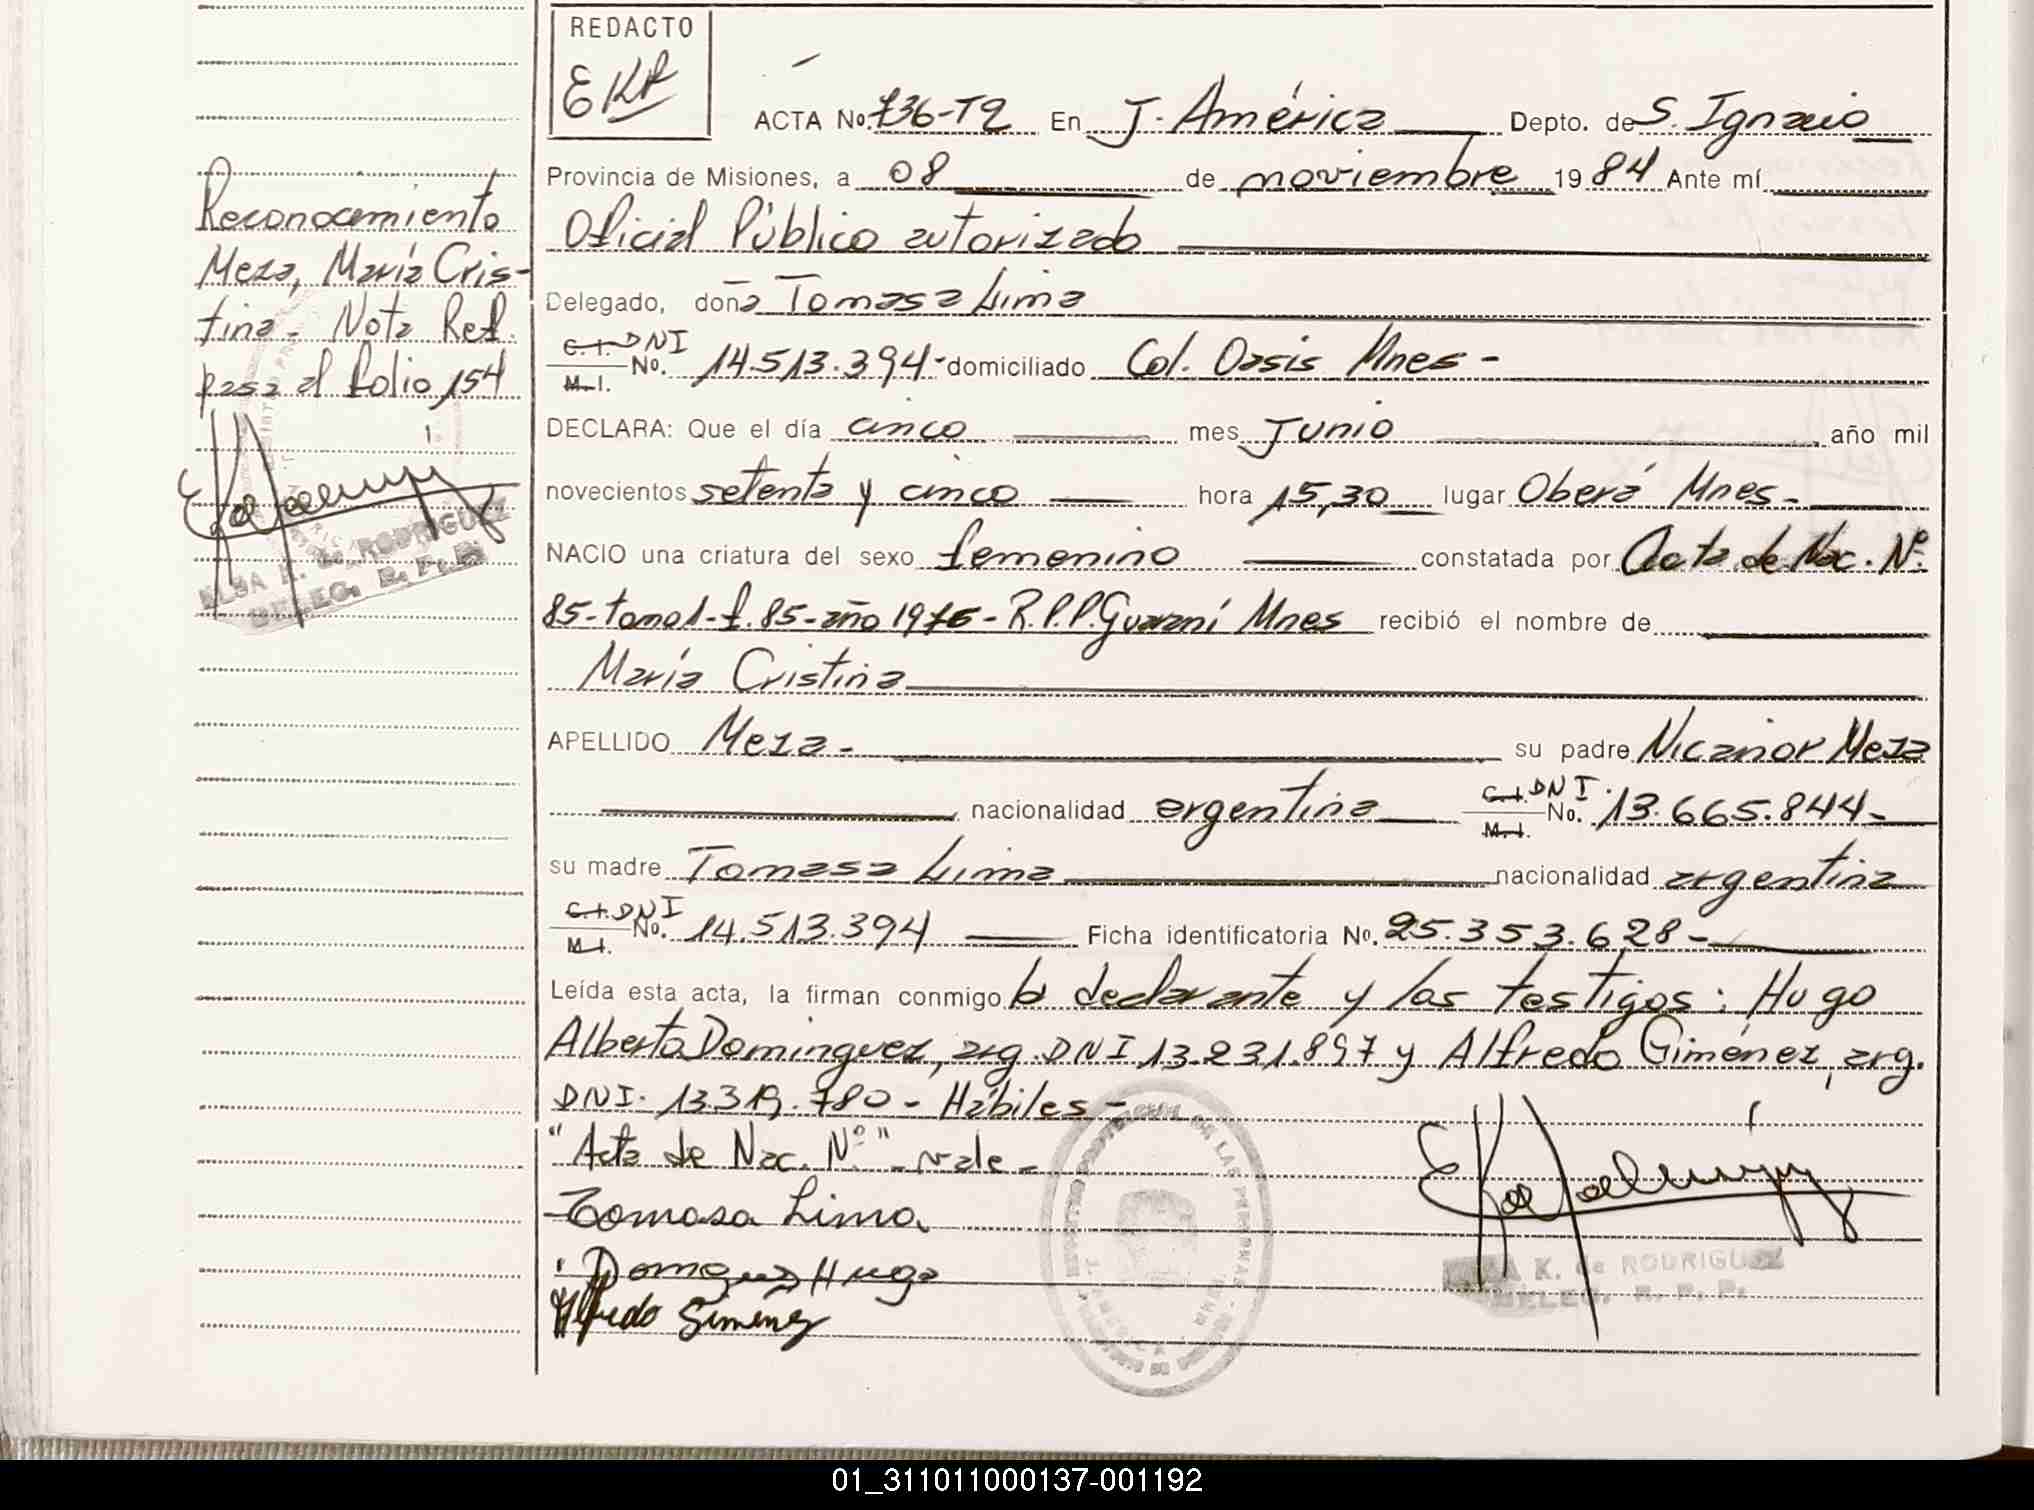 REDACTO
EKR
ACTA No. 736-T2 En J. América Depto. de S. Ignacio
Provincia de Misiones, a 08 de noviembre 1984 Ante mí
Oficial Público autorizado
Delegado, doña Tomasa Lima
C.I. DNI
M.I. No. 14.513.394- domiciliado Col. Oasis Mnes-
DECLARA: Que el día cinco mes Junio año mil
novecientos setenta y cinco hora 15,30 lugar Oberá Mnes-
NACIO una criatura del sexo femenino constatada por Acta de Nac. Nº
85-tomo1-f. 85-año 1976- R.P.P. Guaraní Mnes recibió el nombre de
María Cristina
APELLIDO Meza- su padre Nicanor Meza
nacionalidad argentina C.I. DNI. M.I. No. 13.665.844-
su madre Tomasa Lima nacionalidad argentina
C.I. DNI
M.I. No. 14.513.394 Ficha identificatoria No. 25.353.628-
Leída esta acta, la firman conmigo la declarante y los testigos: Hugo
Alberto Dominguez, arg. DNI 13.231.897 y Alfredo Giménez, arg.
DNI. 13.319.780- Hábiles-
"Acta de Nac. Nº" -vale-
Tomasa Lima
Domguez Hugo
Alfredo Gimenez
K. de RODRIGUEZ
DELEG. R. P. P.
Reconocimiento
Meza, María Cris-
tina- Nota Ref.
pasa al folio 154
ELSA K. de RODRIGUEZ
DELEG. R. P. P.
01_311011000137-001192